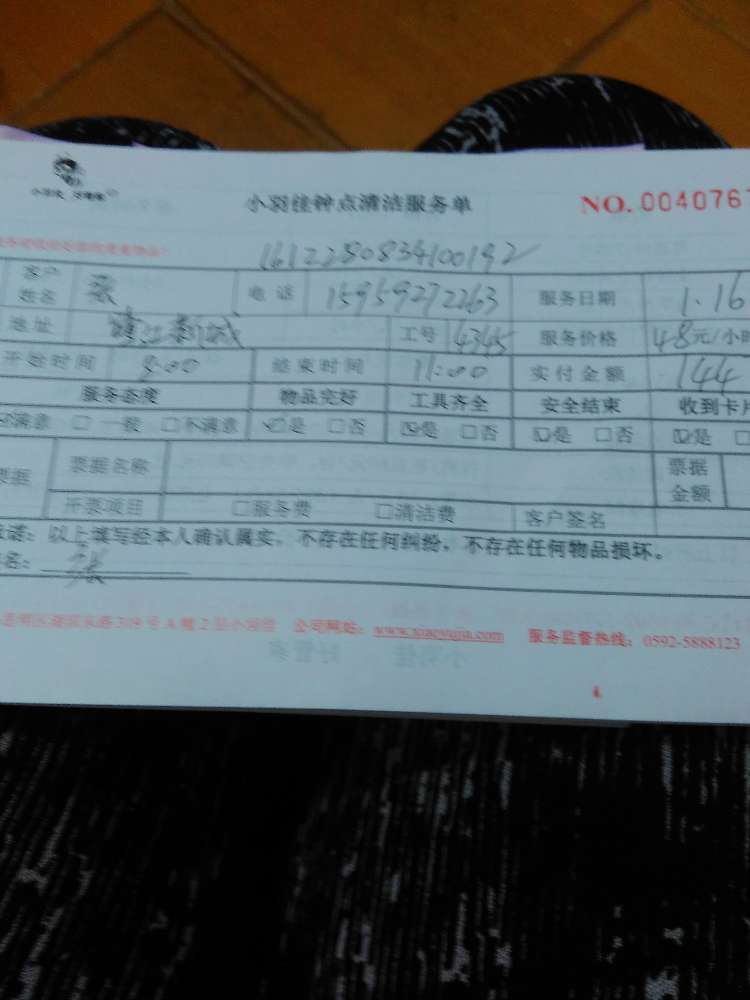 小羽佳钟点清洁服务单 NO. 004076
1612280834100192
客户姓名 张 电话 15959272263 服务日期 1.16
地址 新城 工号 4345 服务价格 48元/小时
开始时间 9:00 结束时间 11:00 实付金额 144
服务态度 物品完好 工具齐全 安全结束 收到卡片
☑满意 □一般 □不满意 ☑是 □否 ☑是 □否 ☑是 □否 ☑是 □
票据 票据名称 票据金额
开票项目 □服务费 □清洁费 客户签名
诺：以上填写经本人确认属实，不存在任何纠纷，不存在任何物品损坏。
名： 张
思明区 东路319号A幢2层小羽佳 公司网站：www.xiaoyujia.com 服务监督热线：0592-5888123